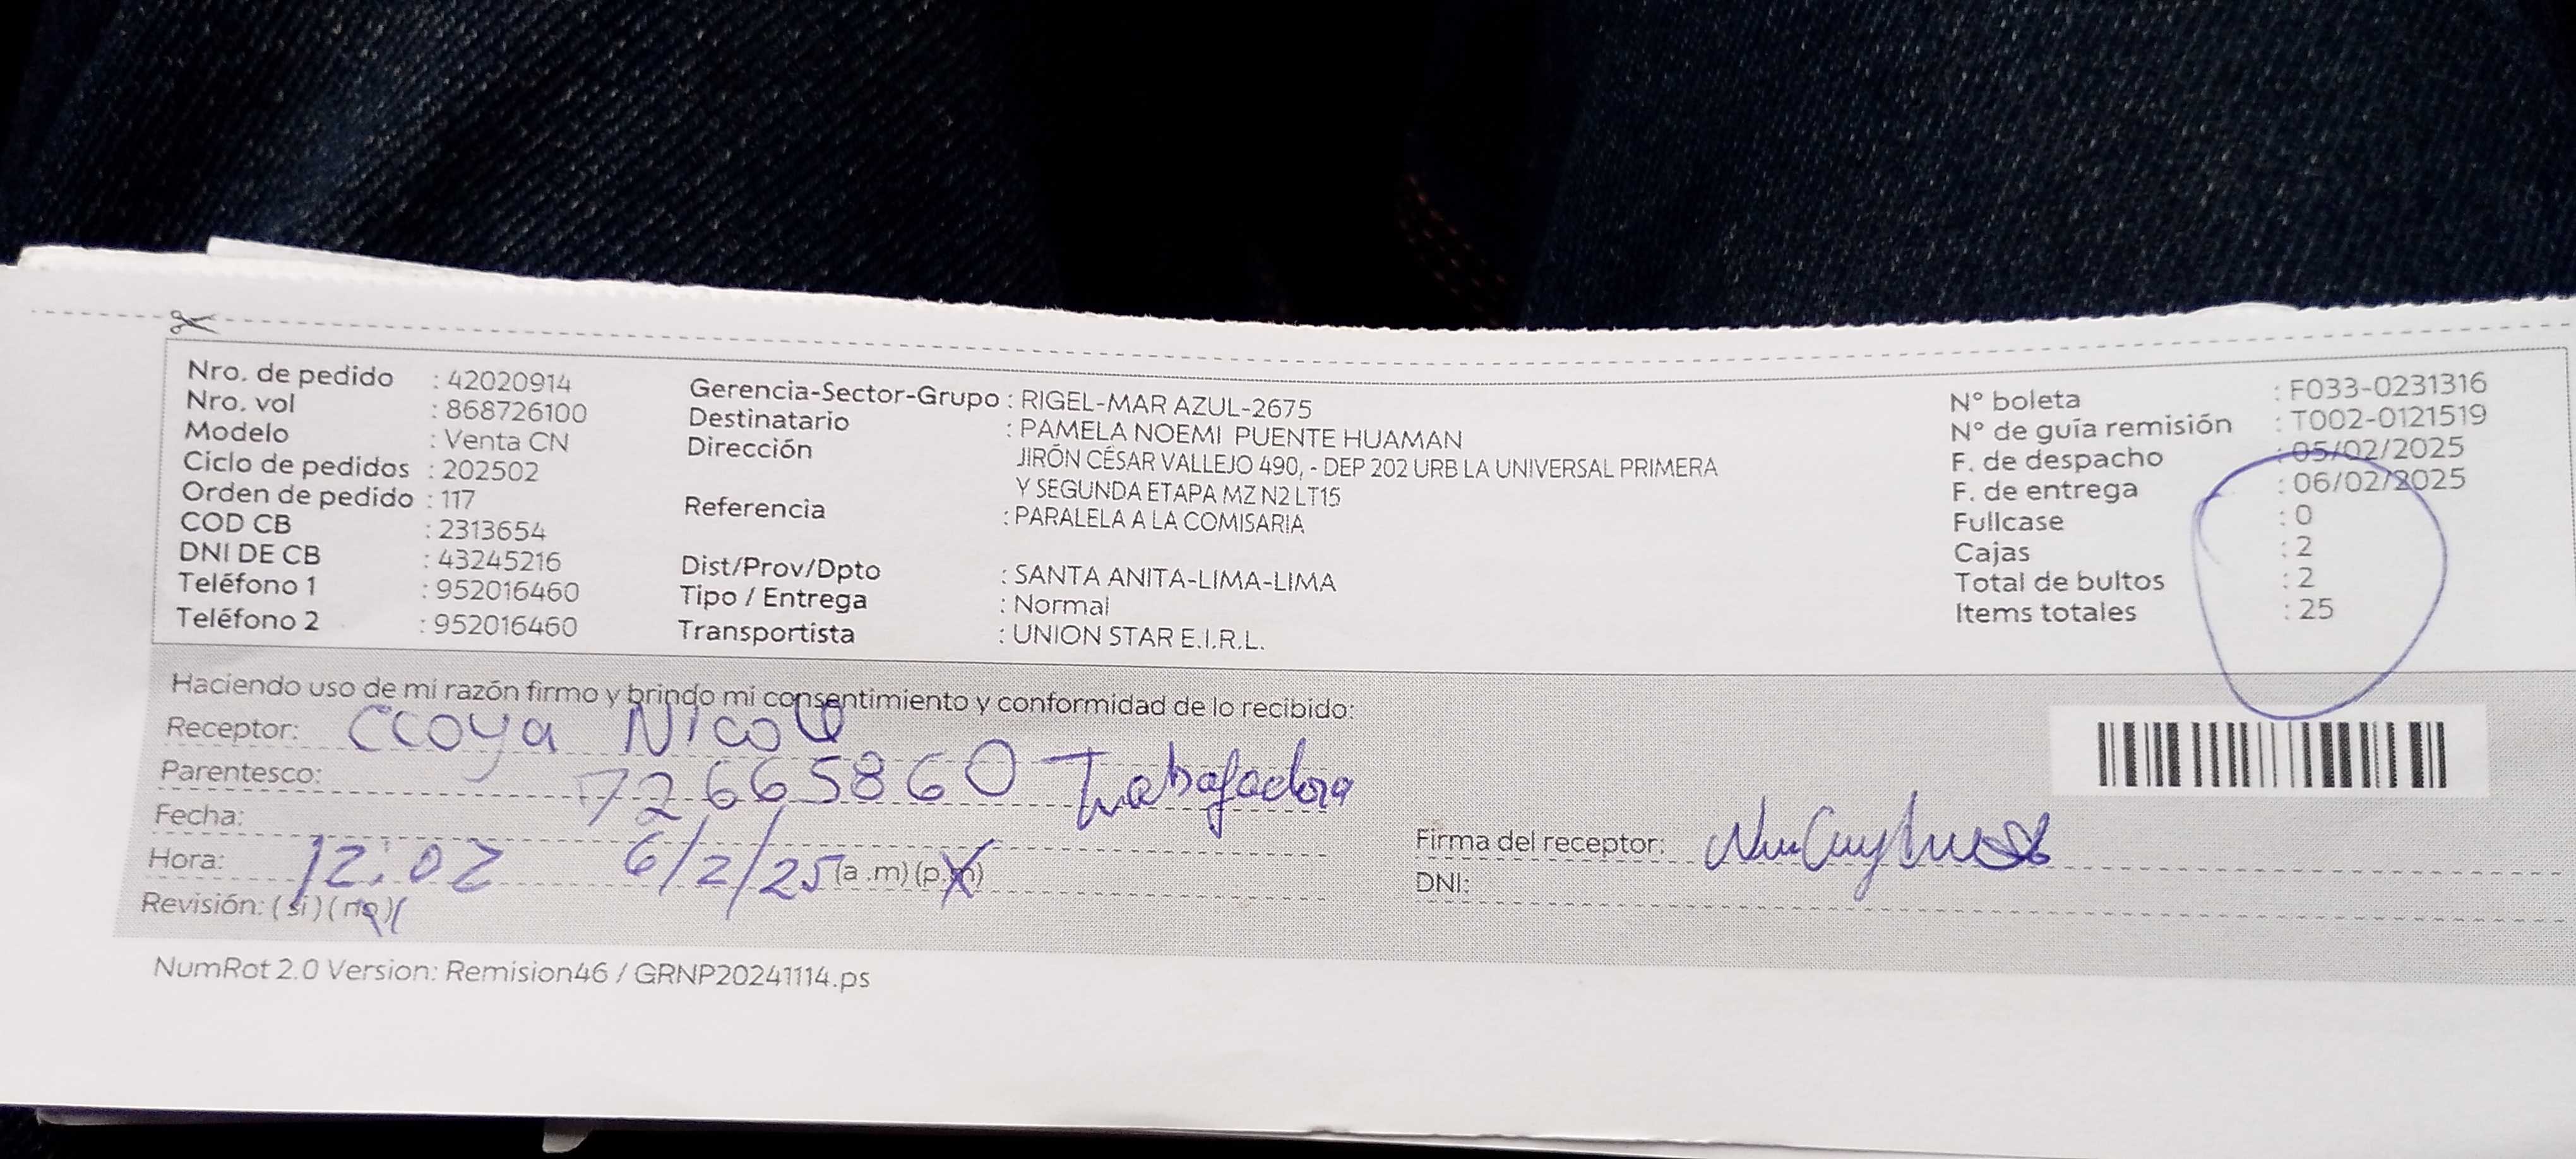 Nro. de pedido : 42020914
Nro. vol : 868726100
Modelo : Venta CN
Ciclo de pedidos : 202502
Orden de pedido : 117
COD CB : 2313654
DNI DE CB : 43245216
Teléfono 1 : 952016460
Teléfono 2 : 952016460
Gerencia-Sector-Grupo : RIGEL-MAR AZUL-2675
Destinatario : PAMELA NOEMI PUENTE HUAMAN
Dirección JIRÓN CÉSAR VALLEJO 490, - DEP 202 URB LA UNIVERSAL PRIMERA
Y SEGUNDA ETAPA MZ N2 LT15
Referencia : PARALELA A LA COMISARIA
Dist/Prov/Dpto : SANTA ANITA-LIMA-LIMA
Tipo / Entrega : Normal
Transportista : UNION STAR E.I.R.L.
N° boleta : F033-0231316
N° de guía remisión : T002-0121519
F. de despacho : 05/02/2025
F. de entrega : 06/02/2025
Fullcase : 0
Cajas : 2
Total de bultos : 2
Items totales : 25
Haciendo uso de mi razón firmo y brindo mi consentimiento y conformidad de lo recibido:
Receptor: Ccoya Nicole
Parentesco: 72665860 Trabajadora
Fecha:
Hora: 12:02 6/2/25 (a .m) (p.m)
Revisión: ( si ) ( no )
Firma del receptor:
DNI:
NumRot 2.0 Version: Remision46 / GRNP20241114.ps